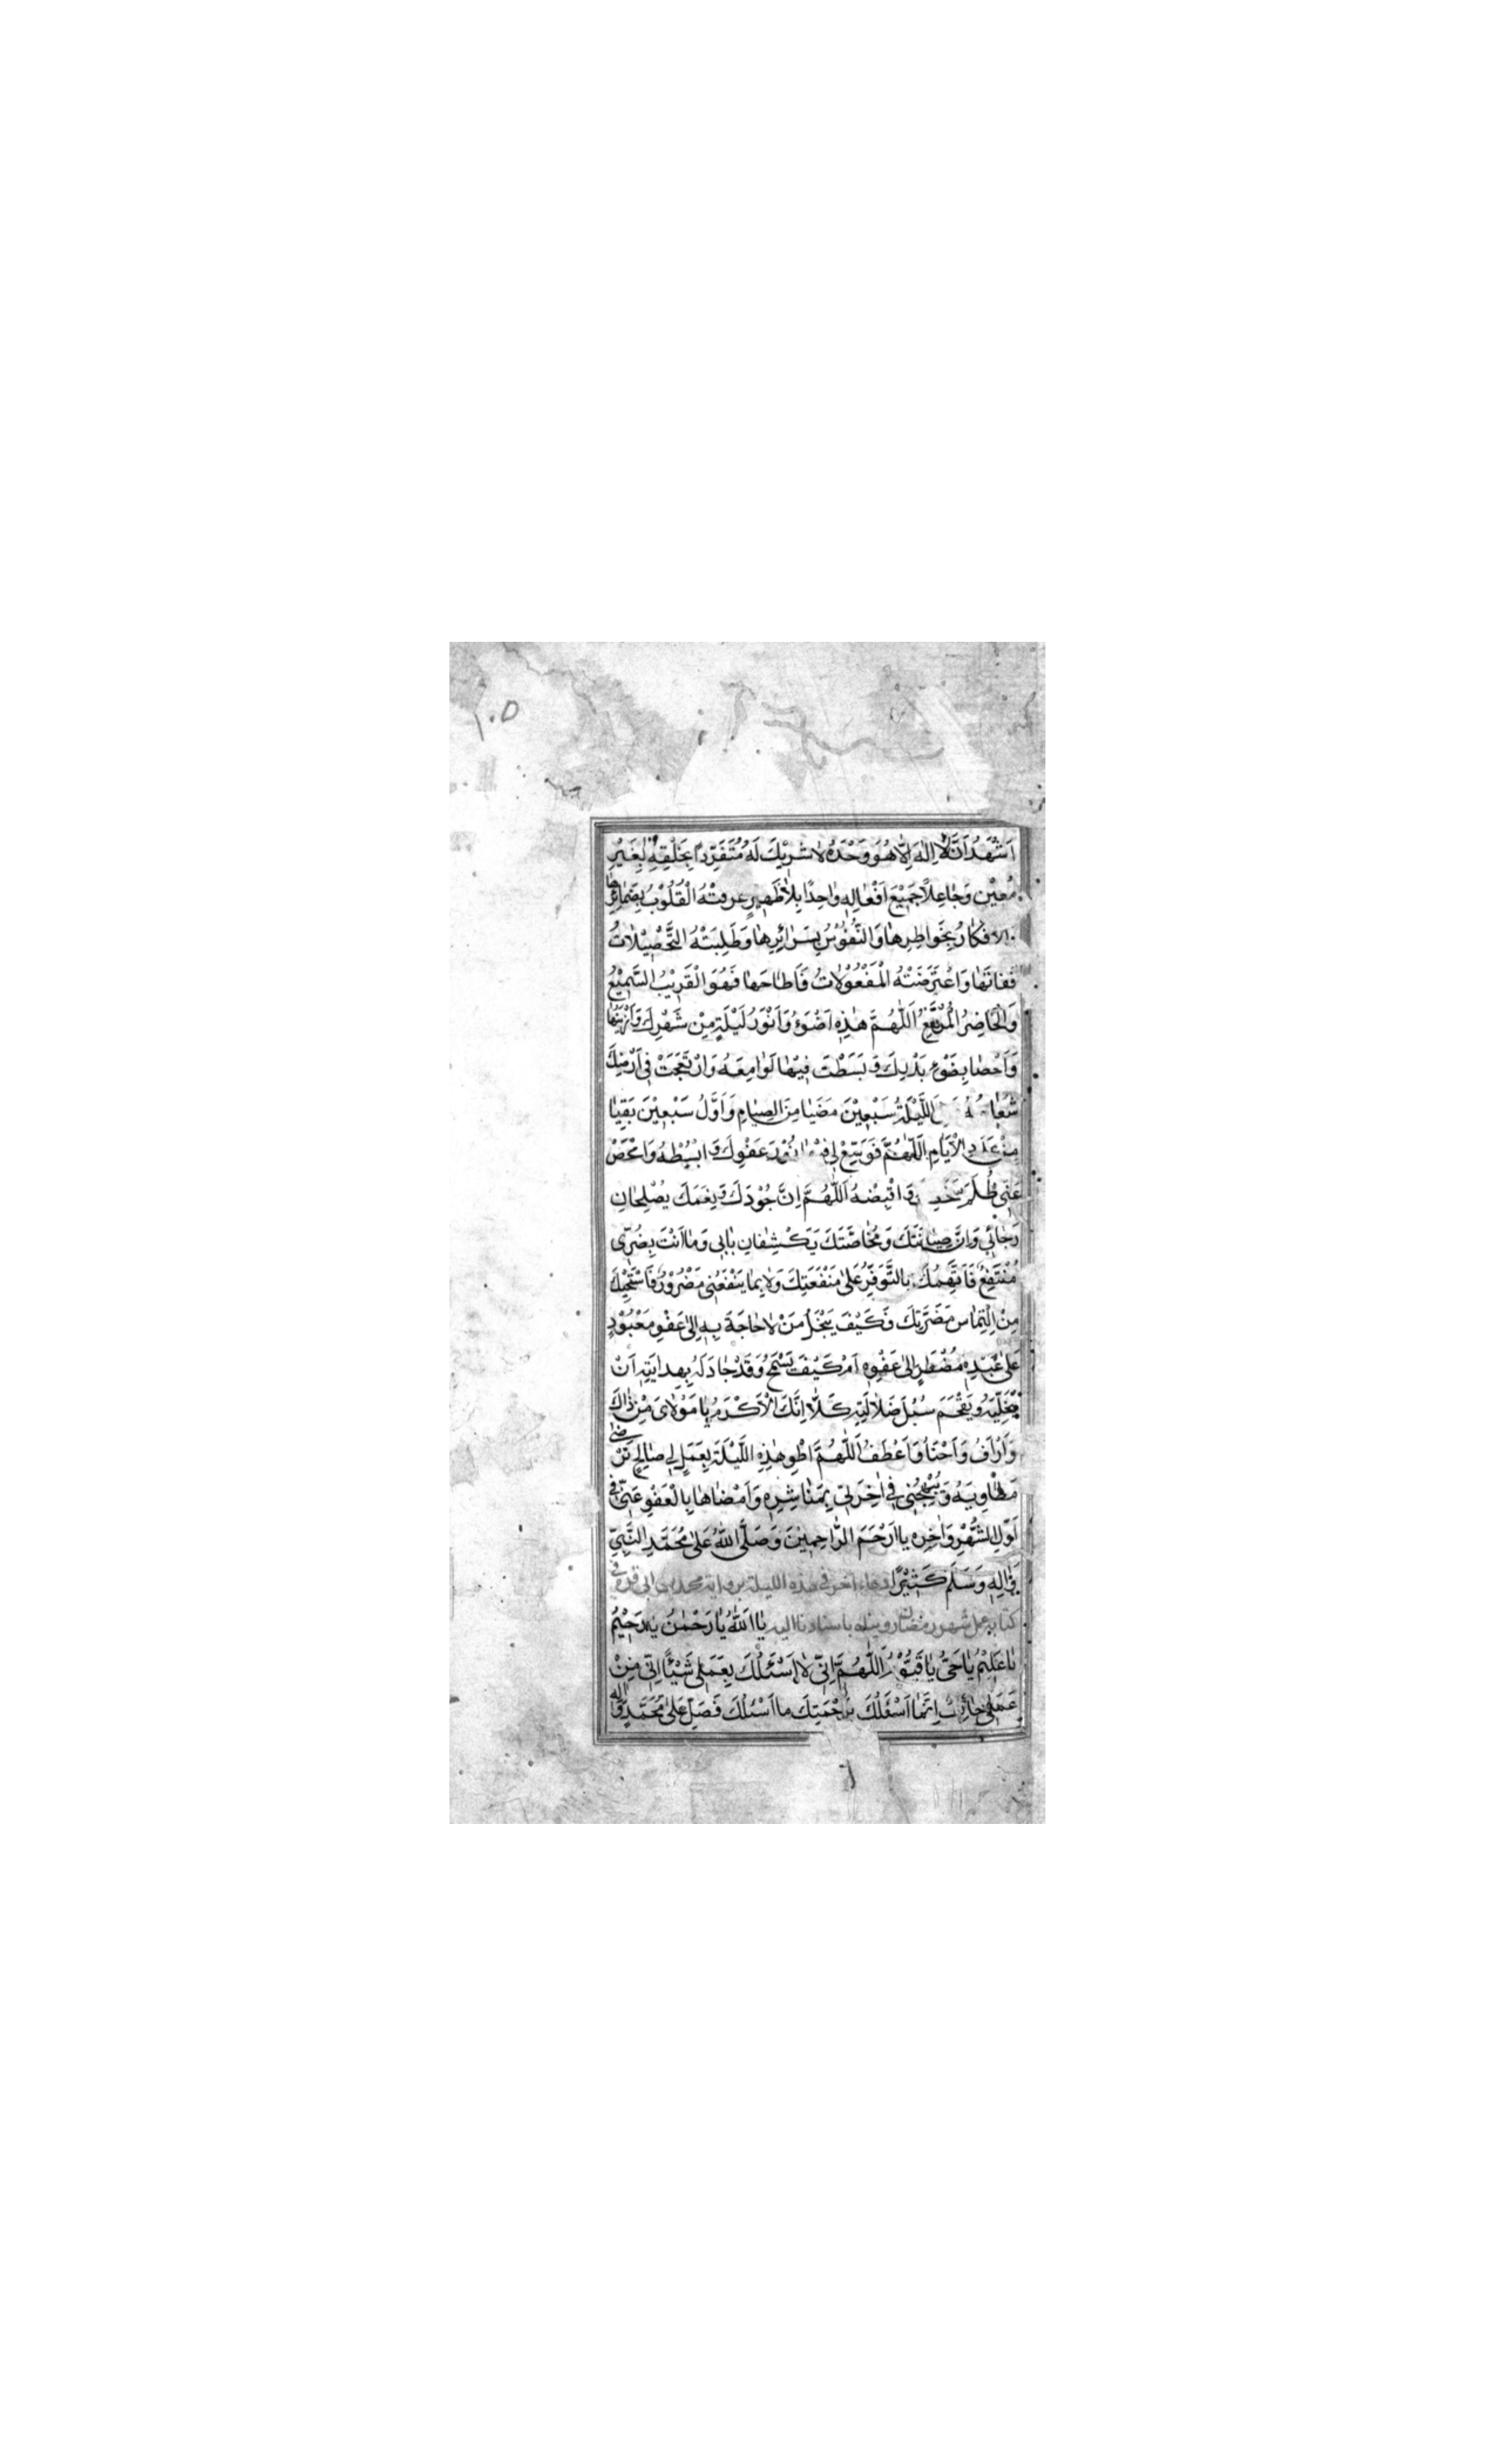 ١٠٥
اَشْهَدُ اَنَّهُ لٰا اِلٰهَ اِلّٰا هُوَ وَحْدَهُ لٰا شَرِيْكَ لَهُ مُتَفَرِّدًا بِخَلْقِهِ بِغَيْرِ
مُعِيْنٍ وَجٰاعِلًا جَمِيْعَ اَفْعٰالِهِ وٰاحِدًا بِلٰا ظَهِيرٍ عرفتْهُ الْقُلُوْبُ بِضَمٰائِرِهٰا
والافكٰارُ بِخَوٰاطِرِهٰا وَالنُّفُوْسُ بِسَرٰائِرِهٰا وَطَلِبَتْهُ التَّحْصِيْلٰاتُ
فَفٰاتَهٰا وَاعْتَرَضَتْهُ الْمَفْعُوْلٰاتُ فَاَطٰاحَهٰا فَهُوَ الْقَرِيْبُ السَّمِيْعُ
وَالْحٰاضِرُ الْمُرْتَفِعُ اَللّٰهُمَّ هٰذِهِ اَضْوَءُ وَاَنْوَرُ لَيْلَةٍ مِنْ شَهْرِكَ وَاَزْيَنُهٰا
وَاَحْصٰا بِضَوْءِ بَدْرِكَ وَ بَسَطْتَ فِيْهٰا لَوٰامِعَهُ وَارْتَجَجَتْ فِي اَرْضِكَ
شُعٰاعُهُ اللَّيْلَةُ سَبْعِيْنَ مَضَيٰا مِنَ الصِيٰامِ وَاَوَّلُ سَبْعِيْنَ بَقِيٰا
مِنْ عَدَدِ الْاَيّٰامِ اَللّٰهُمَّ فَوَسِّعْ لِي فِيْهٰا نُوْرَ عَفْوِكَ وَ ابْسُطْهُ وَامْحَصْ
عَنِّي ظُلَمَ سَخَطِكَ وَ اقْبِضْهُ اَللّٰهُمَّ اِنَّ جُوْدَكَ وَ نِعَمَكَ يُصْلِحٰانِ
رَجٰائِي وَاِنَّ صِيٰانَتَكَ وَمُخٰاصَّتَكَ يَكْشِفٰانِ بٰابِي وَمٰا اَنْتَ بِضُرِّي
مُنْتَفِعٌ فَاَتَّهِمُكَ بِالتَّوَفُّرِ عَلٰى مَنْفَعَتِكَ وَلٰا بِمٰا يَنْفَعُنِي مَضْرُوْرٌ فَاَسْتَحْيِكَ
مِنْ اِلْتِمٰاسِ مَضَرَّتِكَ فَكَيْفَ يَبْخَلُ مَنْ لٰا حٰاجَةَ بِهِ اِلٰى عَفْوِ مَعْبُوْدٍ
عَلٰى عَبْدِهِ مُضْطَرٍّ اِلٰى عَفْوِهِ اَمْ كَيْفَ يَسْمَحُ وَقَدْ جٰادَ لَهُ بِهِدٰايَتِهِ اَنْ
يُخَلِّيَهُ وَيَقْحَمَ سُبُلَ ضَلٰالَتِهِ كَلّٰا اِنَّكَ الْاَكْرَمُ يٰا مَوْلٰايَ مِنْ ذٰلِكَ
وَاَرْاَفُ وَاَحْنٰا وَاَعْطَفُ اَللّٰهُمَّ اطْوِ هٰذِهِ اللَّيْلَةَ بِعَمَلٍ لِي صٰالِحٍ تَرْضٰى
مَطٰاوِيَهُ وَ تُبْهِجُنِي فِي اٰخِرَتِي بِمَنٰاشِرِهِ وَاَمْضٰاهٰا بِالْعَفْوِ عَنّي في
اَوَّلِ الشَّهْرِ وَاٰخِرِهِ يٰا اَرْحَمَ الرّٰاحِمِيْنَ وَصَلَّى اللّٰهُ عَلٰى مُحَمَّدٍ النَّبِيِّ
وَاٰلِهِ وَسَلَّمَ كَثِيْرًا دعاء اخر فى هذه الليلة برواية محمد بن ابى قرة فى
كتابه عمل شهر رمضان رويناه باسنادنا اليه يٰا اَللّٰهُ يٰا رَحْمٰنُ يٰا رَحِيْمُ
يٰا عَلِيْمُ يٰا حَيُّ يٰا قَيُّوْمُ اَللّٰهُمَّ اِنِّي لٰا اَسْئَلُكَ بِعَمَلِي شَيْئًا اِنّي مِنْ
عَمَلِي خٰائِفٌ اِنَّمٰا اَسْئَلُكَ بِرَحْمَتِكَ مٰا اَسْئَلُكَ فَصَلِّ عَلٰى مُحَمَّدٍ وَاٰلِهِ